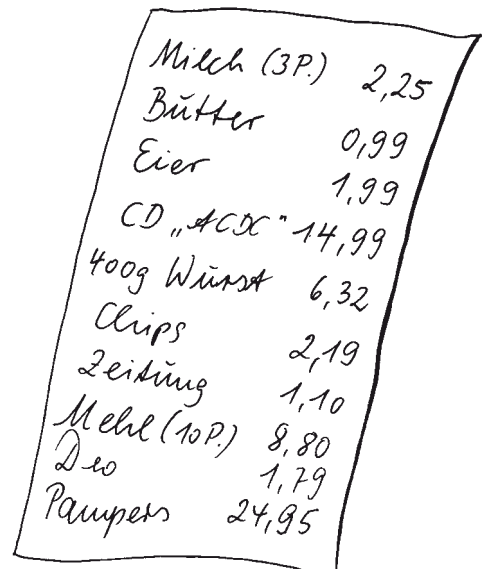 Milch (3P.) 2,25
Butter 0,99
Eier 1,99
CD „ACDC“ 14,99
400g Wurst 6,32
Chips 2,19
Zeitung 1,10
Mehl (10P.) 8,80
Deo 1,79
Pampers 24,95